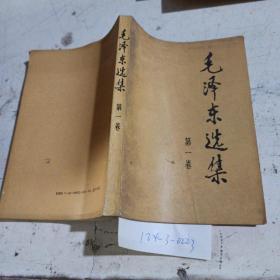 毛泽东选集
第一卷
毛泽东选集
第一卷
134-3-0223